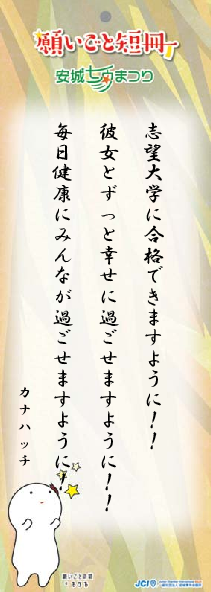 願いごと短冊
安城七夕まつり
志望大学に合格できますように！！
彼女とずっと幸せに過ごせますように！！
毎日健康にみんなが過ごせますように！
カナハッチ
願いごと短冊
JCI